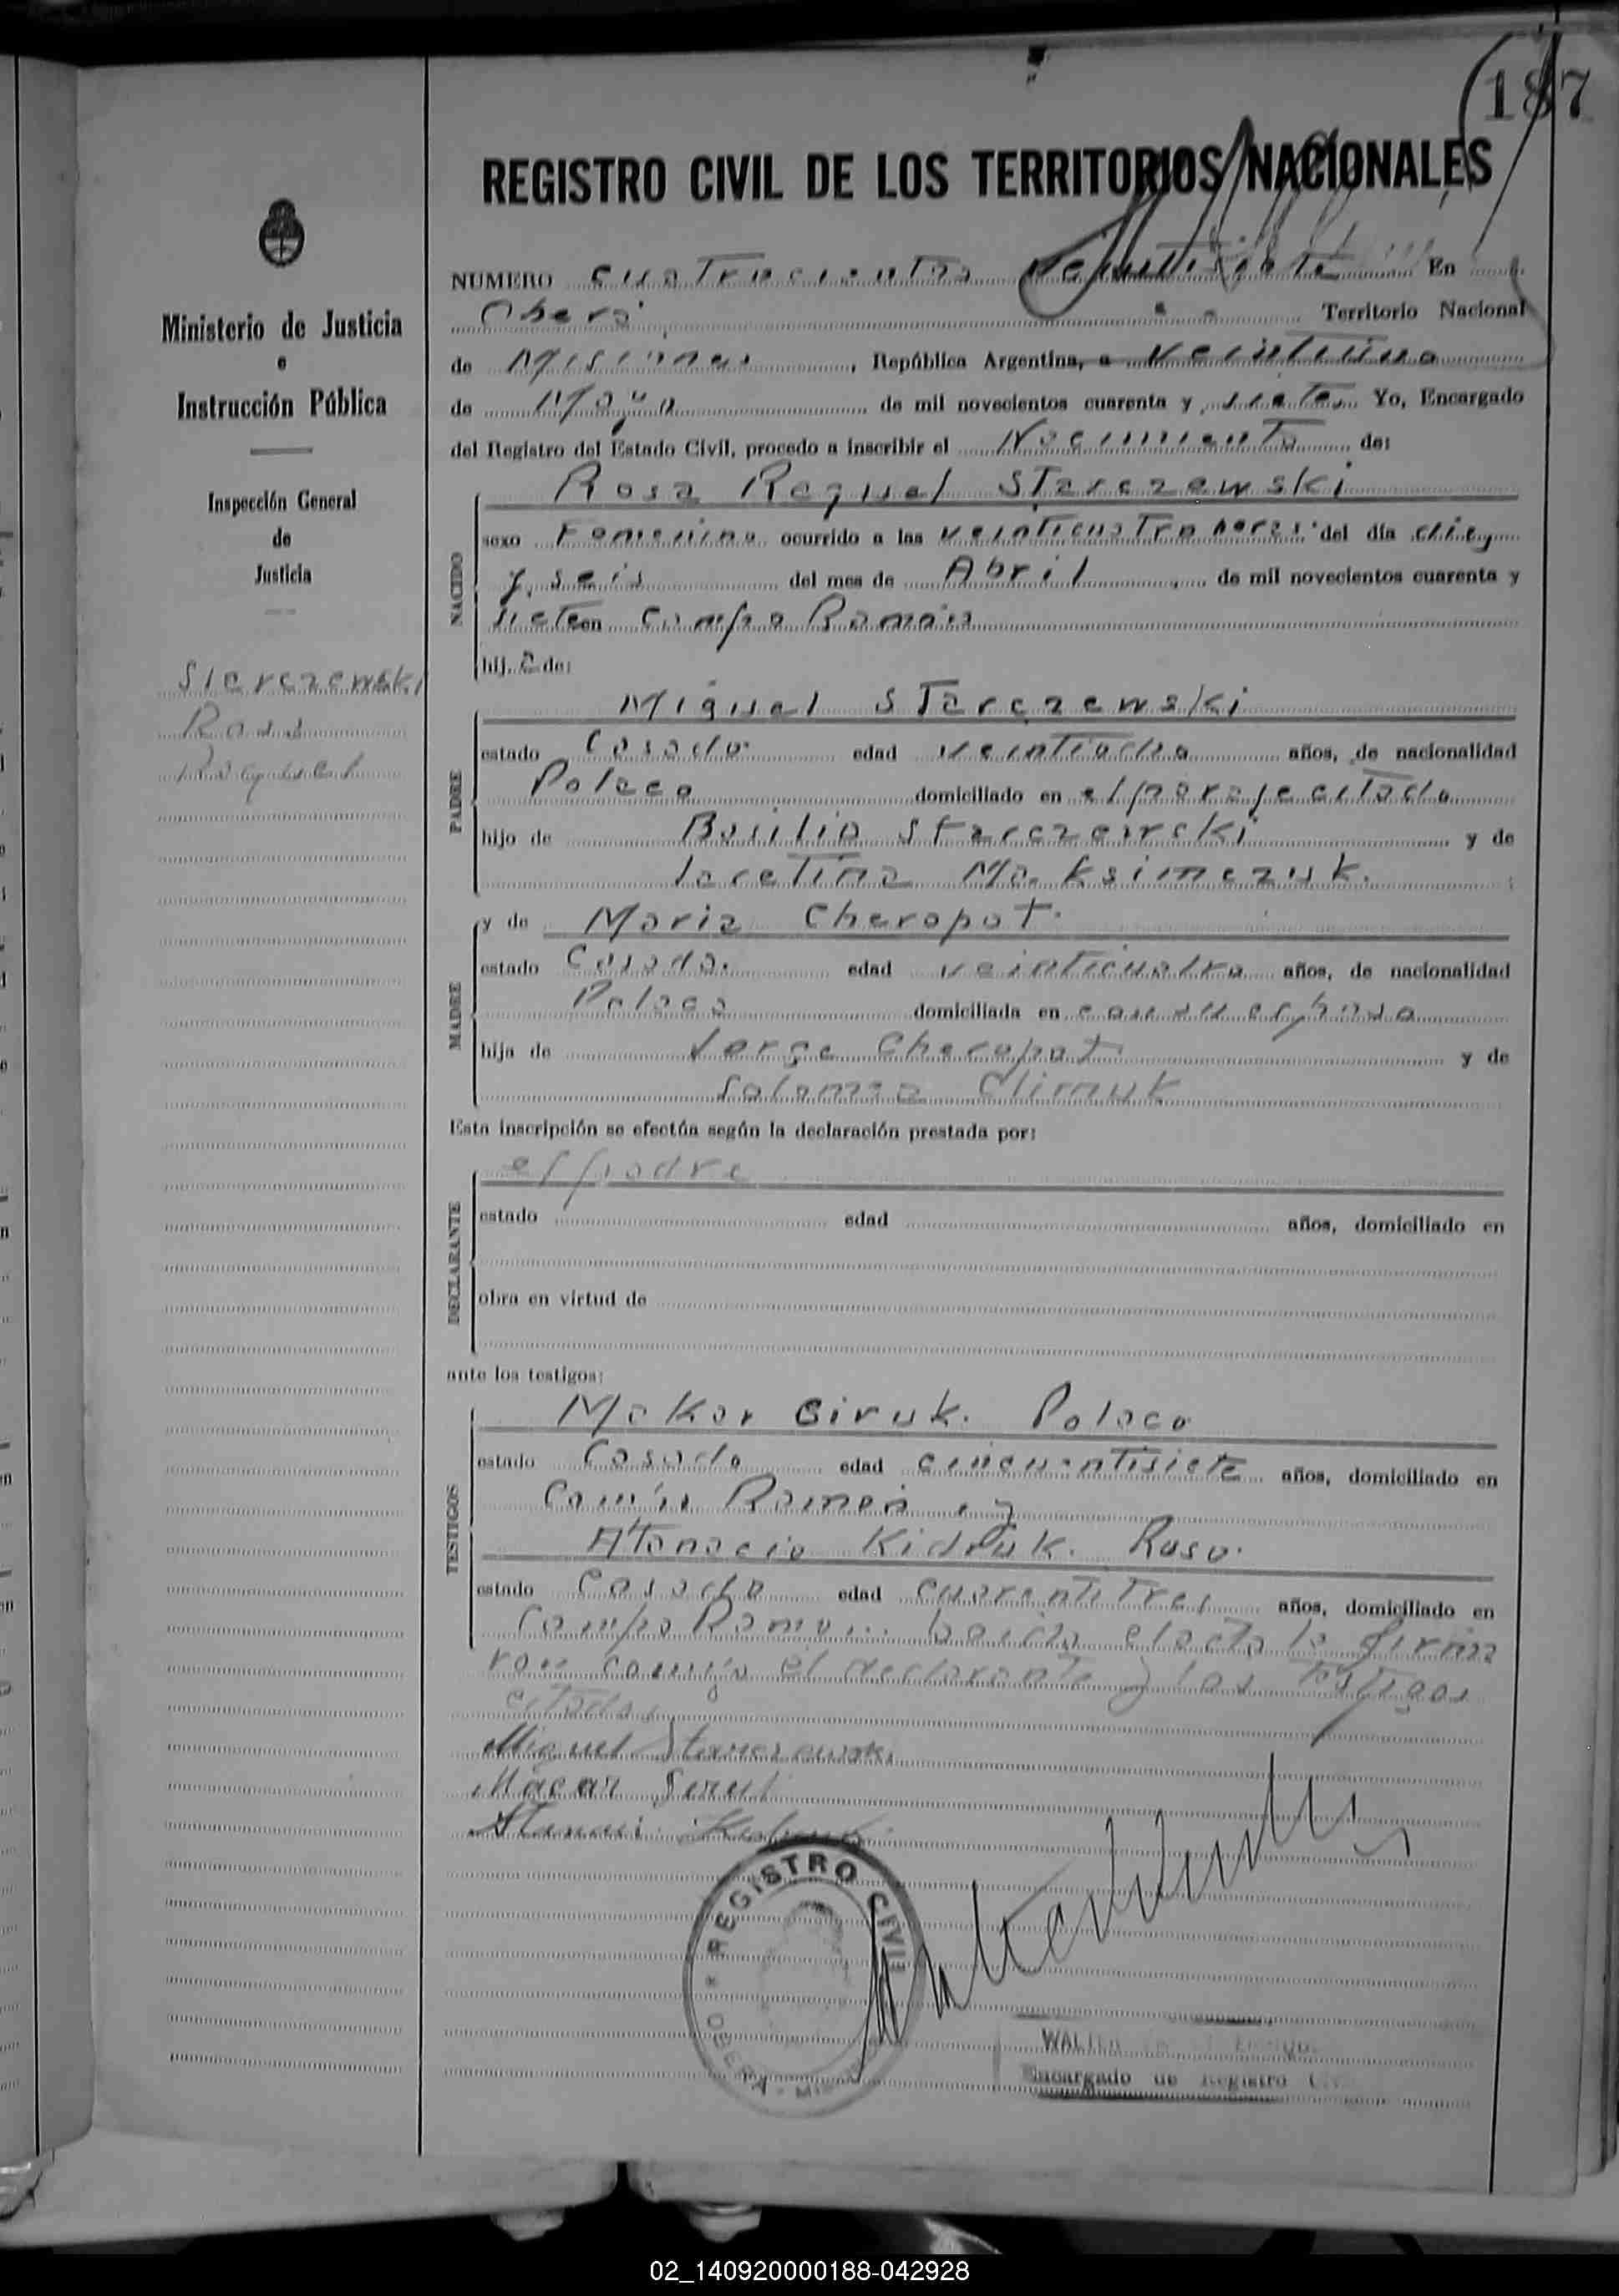 187
REGISTRO CIVIL DE LOS TERRITORIOS NACIONALES
NUMERO cuatrocientos En
Oberá Territorio Nacional
de Misiones, República Argentina, a veintiuno
de Mayo de mil novecientos cuarenta y siete. Yo, Encargado
del Registro del Estado Civil, procedo a inscribir el Nacimiento de:
Ministerio de Justicia
e
Instrucción Pública
Inspección General
de
Justicia
Starczewski
Rosa
Raquel
NACIDO
Rosa Raquel Starczewski
sexo Femenino ocurrido a las veinticuatro horas del día diez
y seis del mes de Abril de mil novecientos cuarenta y
siete en Campo Ramón
hij a de:
PADRE
Miguel Starczewski
estado Casado edad veintiocho años, de nacionalidad
Polaca domiciliado en el paraje citado
hijo de Basilio Starczewski y de
Maksimczuk.
MADRE
y de Maria Cheropot.
estado Casada. edad veinticuatro años, de nacionalidad
Polaca domiciliada en
hija de Jorge Cheropot y de
Salomea Climuk
Esta inscripción se efectúa según la declaración prestada por:
DECLARANTE
el padre
estado edad años, domiciliado en
obra en virtud de
ante los testigos:
TESTIGOS
Makar Siruk. Polaco
estado Casado edad cincuentisiete años, domiciliado en
Ramón y
Atanacio Kidruk. Ruso.
estado Casado edad cuarentitres años, domiciliado en
Campo Ramon. Leida el acta la firma
ron conmigo el declarante y los testigos
citados
Miguel Starczewski
Macar Seruk
REGISTRO CIVIL
OBERA - MISIONES
Encargado de Registro
02_140920000188-042928